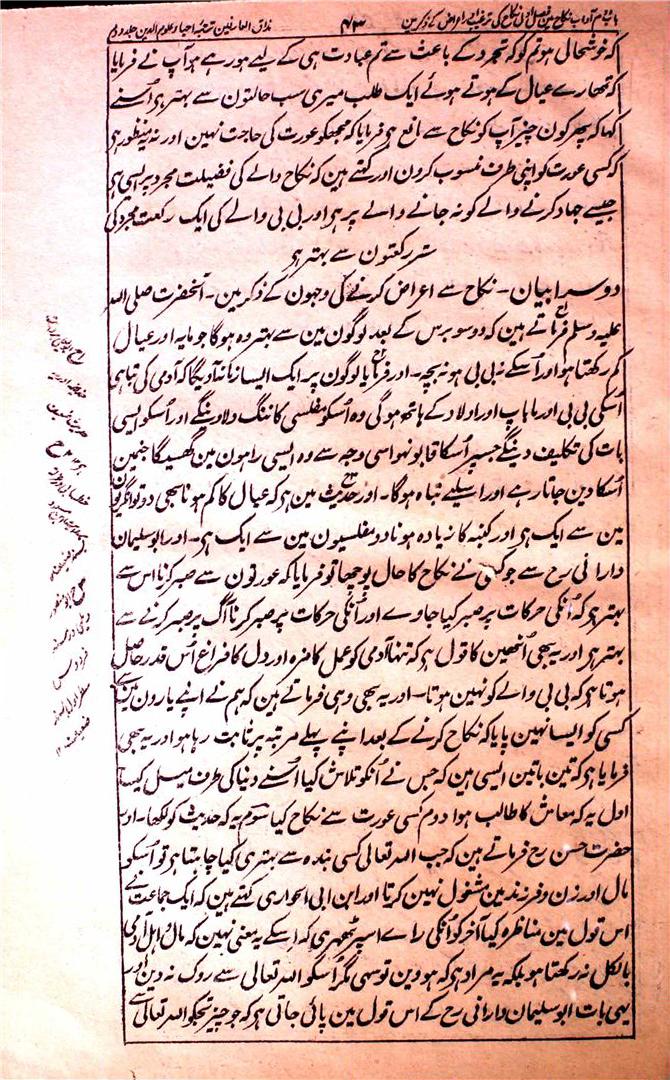 باب دوم آداب نکاح مین فصل اول نکاح کی ترغیب اور اعراض کے ذکر مین ۴۳ مذاق العارفین ترجمۂ احیاء علوم الدین جلد دوم
کہ خوشحالی ہو تم کو کہ تجرد کے باعث سے تم عبادت ہی کے لیے ہو رہے ہو آپ نے فرمایا
کہ تمھارے عیال کے ہوتے ہوئے ایک طلب میری سب حالتون سے بہتر ہی اُسنے
کہا کہ پھر کون چیز آپ کو نکاح سے مانع ہو فرمایا کہ مجھکو عورت کی حاجت نہین اور نہ یہ منظور ہی
کہ کسی عورت کو اپنی طرف منسوب کرون اور کہتے ہین کہ نکاح والے کی فضیلت مجرد پر ایسی ہی
جیسے جہاد کرنے والے کو نہ جانے والے پر ہو اور بی بی والے کی ایک رکعت مجرد کی
ستر رکعتون سے بہتر ہو
دوسرا بیان ۔ نکاح سے اعراض کرنے کی وجہون کے ذکر مین ۔ آنحضرت صلی اللہ
علیہ وسلم فرماتے ہین کہ دو سو برس کے بعد لوگون مین سے بہتر وہ ہوگا جو مایہ اور عیال
کم رکھتا ہو اور اُسکے نہ بی بی ہو نہ بچہ ۔ اور فرمایا لوگون پر ایک ایسا زمانہ آویگا کہ آدمی کی تباہی
اُسکی بی بی اور ماباپ اور اولاد کے ہاتھ ہوگی وہ اُسکو مفلسی کا ننگ دلاوینگے اور اُسکو ایسی
بات کی تکلیف دینگے جسپر اُسکا قابو نہو اسی وجہ سے وہ ایسی راہون مین گھسیگا جنمین
اُسکا دین جاتا رہے اور اسلیے تباہ ہوگا ۔ اور حدیث مین ہو کہ عیال کا کم ہونا بھی دو تونگریون
مین سے ایک ہو اور کنبہ کا زیادہ ہونا دو مفلسیون مین سے ایک ہو ۔ اور ابو سلیمان
دارانی رح سے جو کسی نے نکاح کا حال پوچھا تو فرمایا کہ عورتون سے صبر کرنا اس سے
بہتر ہو کہ اُنکی حرکات پر صبر کیا جاوے اور اُنکی حرکات پر صبر کرنا آگ پر صبر کرنے سے
بہتر ہو اور یہ بھی اُنھین کا قول ہو کہ تنہا آدمی کو عمل کا مزہ اور دل کا فراغ اُس قدر حاصل
ہوتا ہو کہ بی بی والے کو نہین ہوتا ۔ اور یہ بھی وہی فرماتے ہین کہ ہم نے اپنے یارون مین سے
کسی کو ایسا نہین پایا کہ نکاح کرنے کے بعد اپنے پہلے مرتبہ پر ثابت رہا ہو اور یہ بھی
فرمایا ہو کہ تین باتین ایسی ہین کہ جس نے اُنکو تلاش کیا اُسنے دنیا کی طرف میل کیا
اول یہ کہ معاش کا طالب ہوا دوم کسی عورت سے نکاح کیا سوم یہ کہ حدیث کو لکھا ۔ اور
حضرت حسن رح فرماتے ہین کہ جب اللہ تعالی کسی بندہ سے بہتری کیا چاہتا ہو تو اُسکو
مال اور زن و فرزند مین مشغول نہین کرتا اور ابن ابی الحواری کہتے ہین کہ ایک جماعت نے
اس قول مین مناظرہ کیا آخر کو اُنکی راے اسپر ٹھہری کہ اسکے یہ معنی نہین کہ مال و اہل آدمی
بالکل نہ رکھتا ہو بلکہ یہ مراد ہو کہ ہووین تو سہی مگر اُسکو اللہ تعالی سے روک نہ دین اور
یہی بات ابو سلیمان دارانی رح کے اس قول مین پائی جاتی ہو کہ جو چیز تجکو اللہ تعالی سے